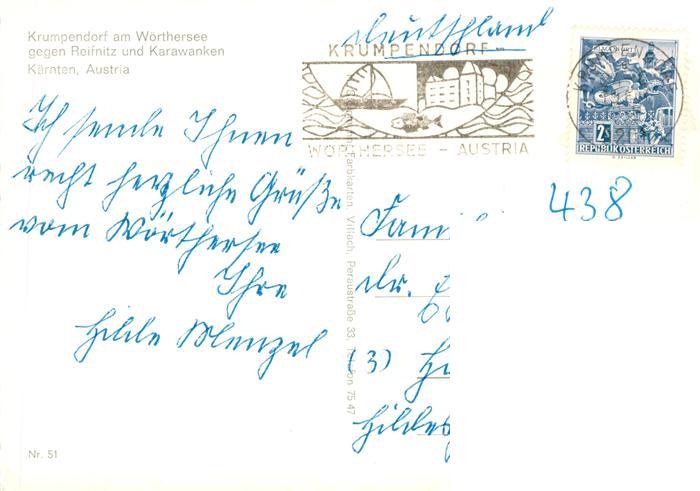 Krumpendorf am Wörthersee
gegen Reifnitz und Karawanken
Kärnten, Austria
Deutschland
KRUMPENDORF
WÖRTHERSEE – AUSTRIA
2S
REPUBLIK ÖSTERREICH
438
Ich sende Ihnen
recht herzliche Grüße
vom Wörthersee
Ihre
Hilde Menzel
Farbkarten Villach, Peraustraße 33, Telefon 75 47
Fami
Dr.
(3) H
Hildes
Nr. 51